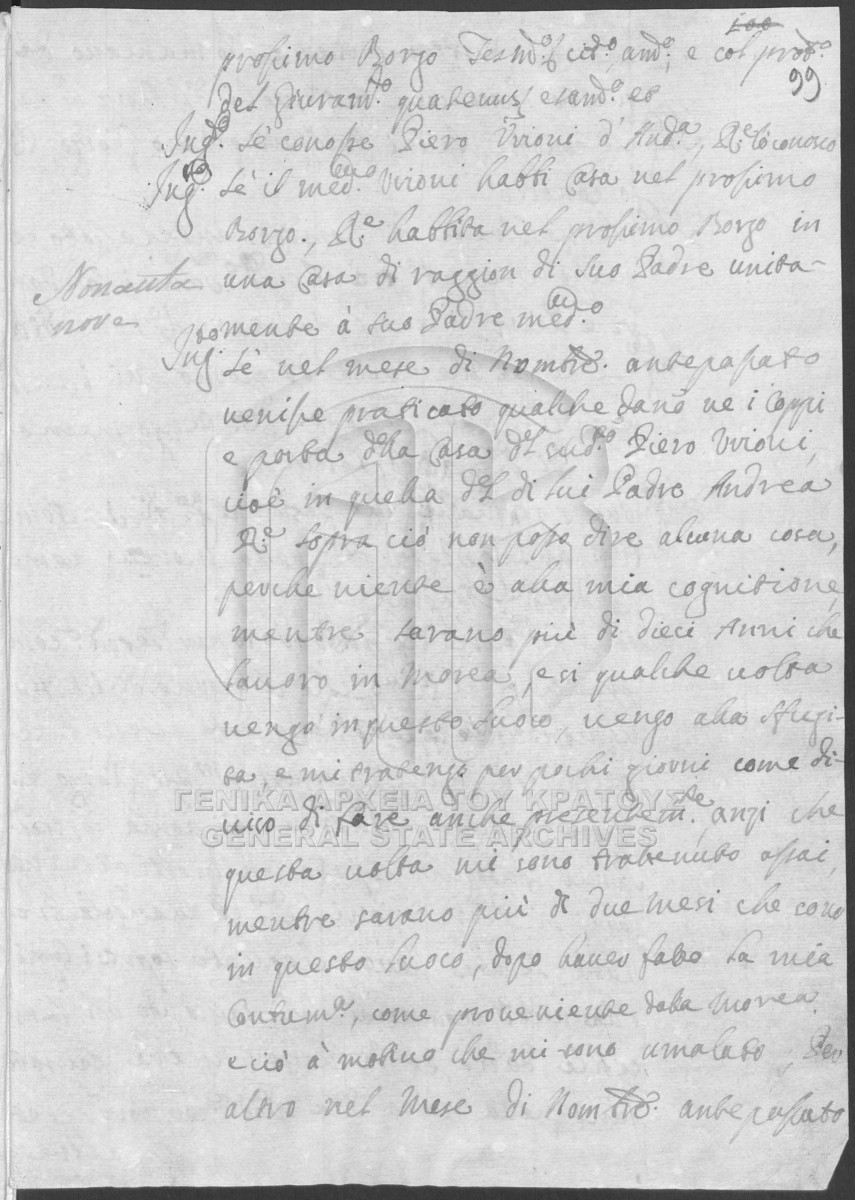 99
prossimo Borgo Testim.º cit.º, am.º, e col prod.º
del Giuram.to quatenus, esam.º et
Ing.do Sè conosse Piero Vrioni d' And.a, R.e lò conosco
Ing.to Sè il med.mo Vrioni habbi Casa nel prossimo
Borgo., R.e habbita nel prossimo Borgo in
una Casa di raggion di suo Padre unita-
Nonanta
nove
mente à suo Padre med.mo
Ing.to Sè nel mese di Nombre. antepassato
venisse praticato qualche dano ne i Coppi
e porta della Casa del sud.to Piero Vrioni,
cioè in quella del di lui Padre Andrea
R.e Sopra ciò non posso dire alcuna cosa,
perche niente è alla mia cognitione,
mentre sarano più di dieci Anni che
lavoro in Morea, e si qualche volta
vengo in questo luoco, vengo alla sfugi-
ta, e mi trattengo per pochi giorni come di-
viso di fare anche presentem.te, anzi che
questa volta mi sono trattenuto assai,
mentre sarano più di due mesi che sono
in questo luoco, dopo haver fatto la mia
Contum.a, come proveniente dalla Morea.
e ciò à motivo che mi sono amalato, Per
altro nel Mese di Nombre. antepassato
ΓΕΝΙΚΑ ΑΡΧΕΙΑ ΤΟΥ ΚΡΑΤΟΥΣ
GENERAL STATE ARCHIVES